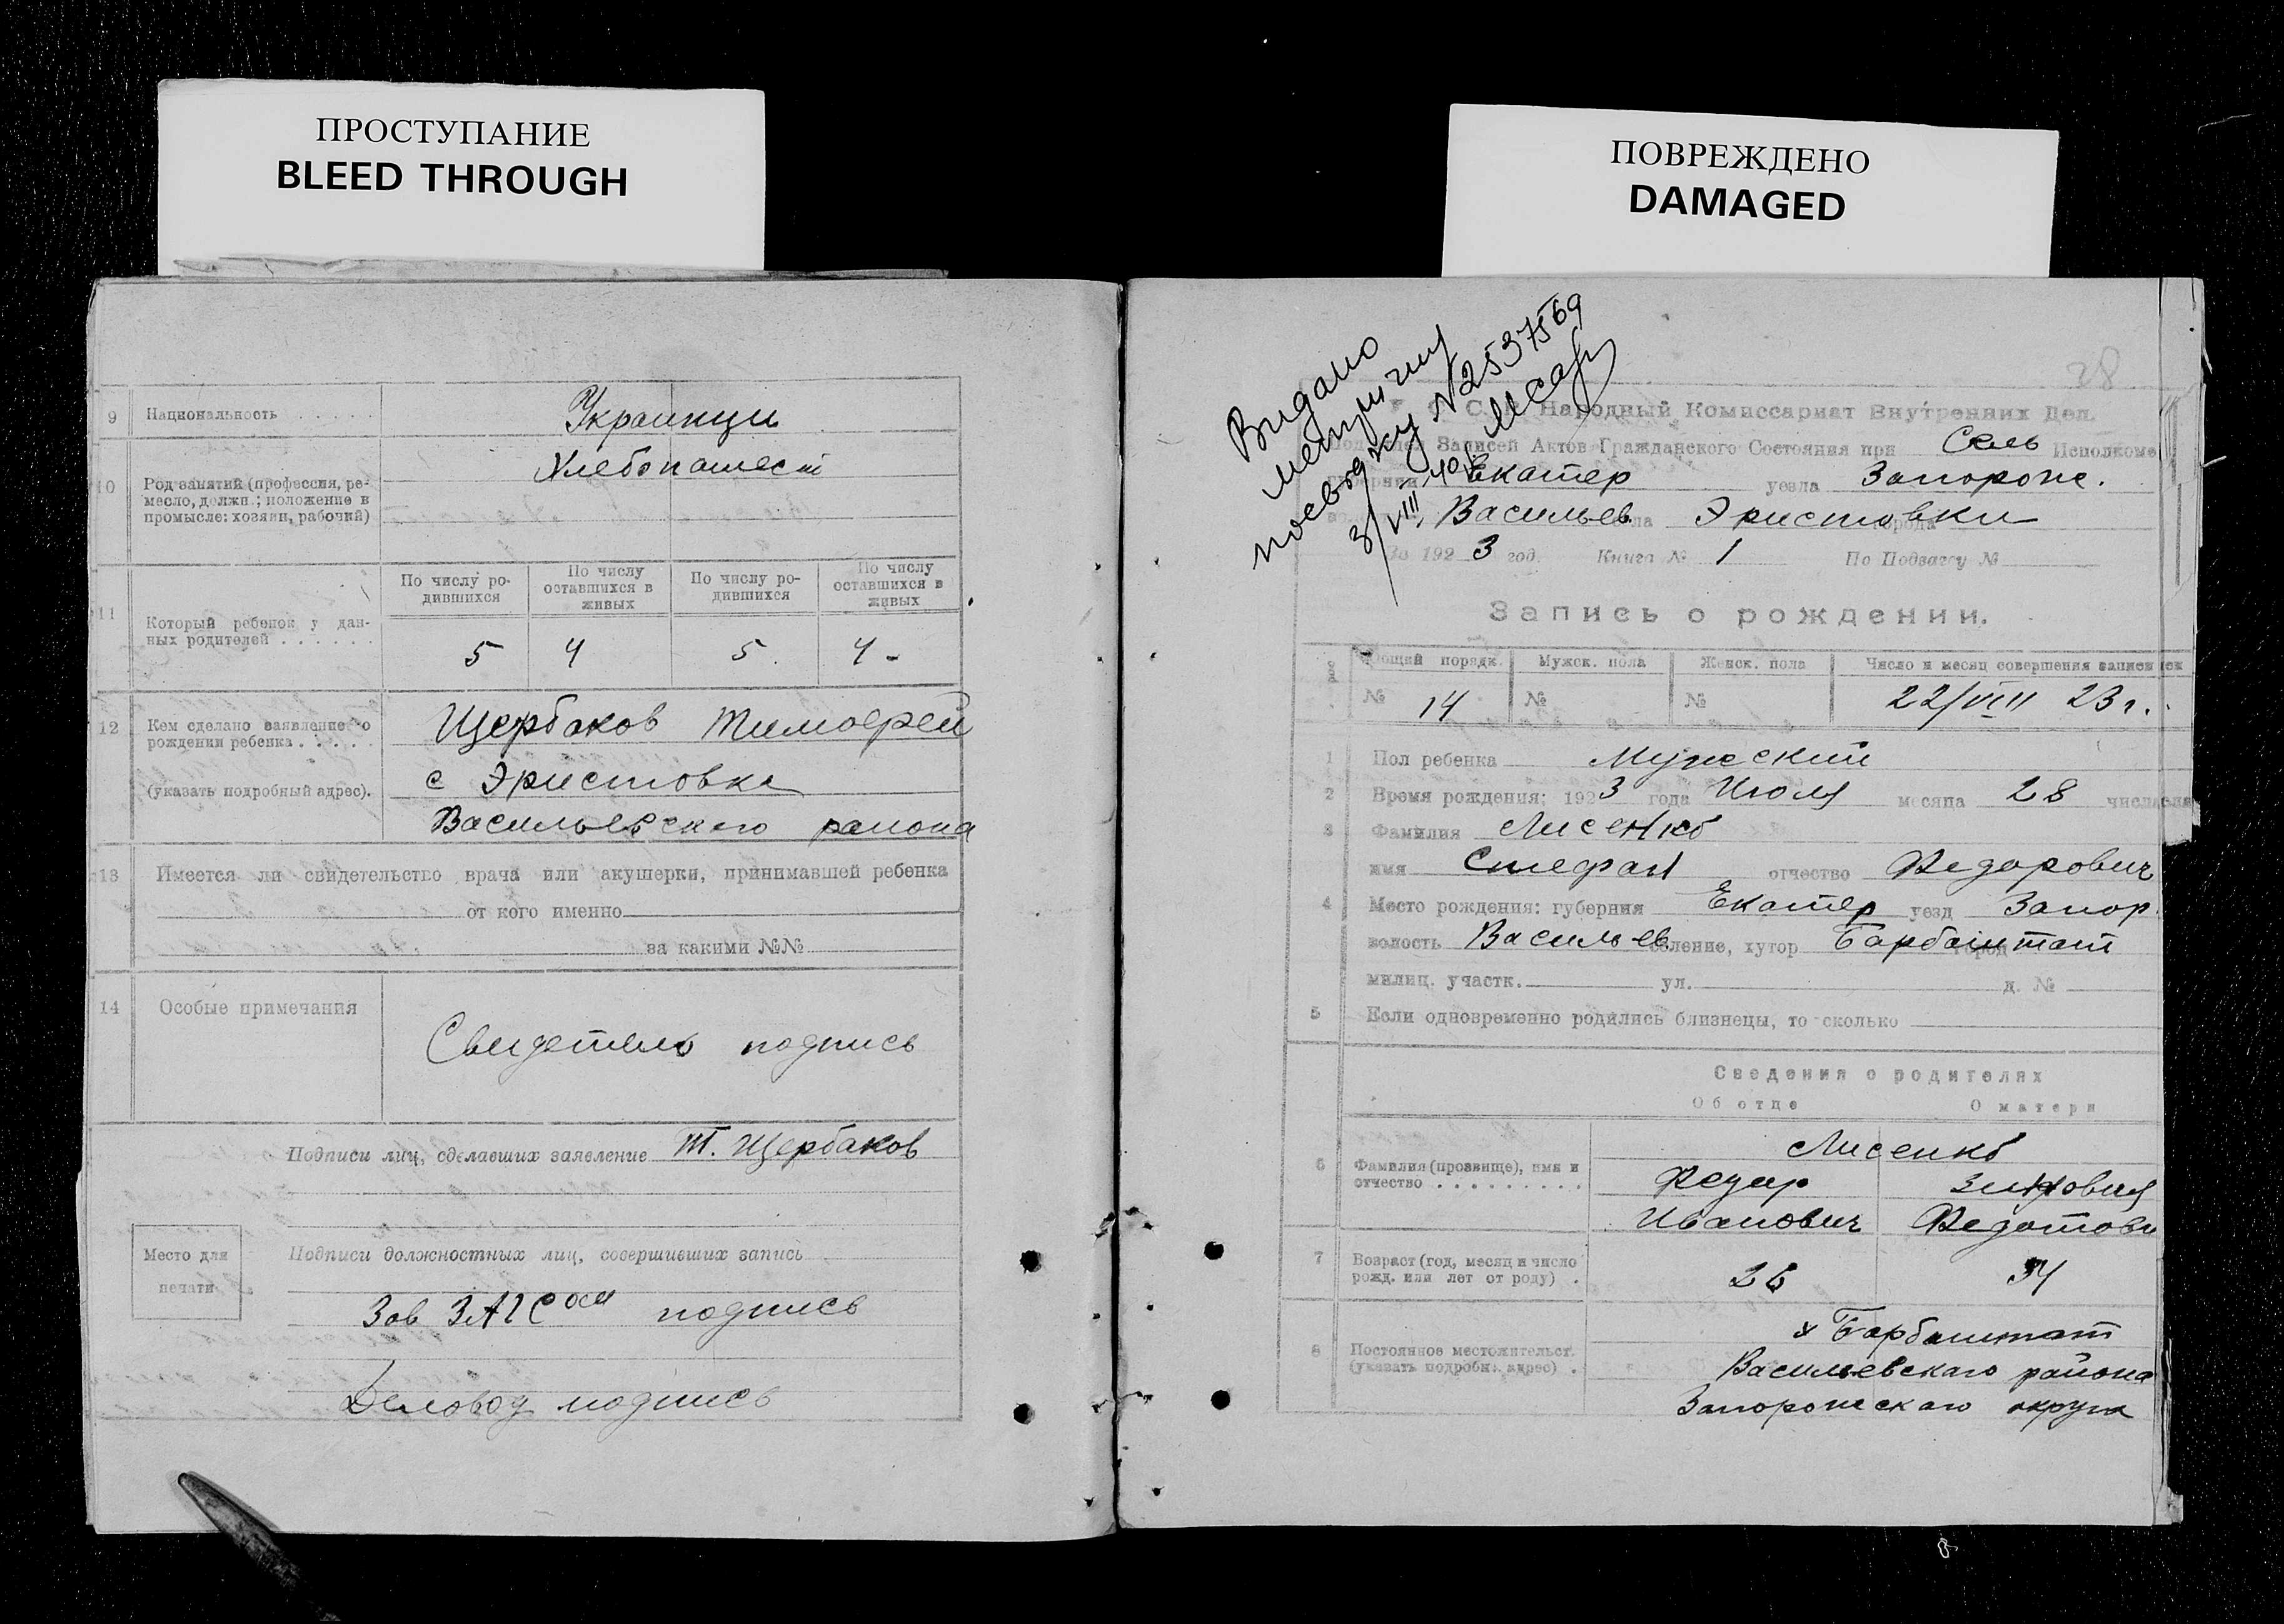 ПРОСТУПАНИЕ
BLEED THROUGH
9 Национальность Украинци
Хлебопашест
10 Род занятий (профессия, ре-
месло, должн.; положение в
промысле: хозяин, рабочий)
По числу ро-
дившихся
По числу
оставшихся в
живых
По числу ро-
дившихся
По числу
оставшихся в
живых
11 Который ребенок у дан-
ных родителей
5 4 5 4
12 Кем сделано заявление о
рождении ребенка
(указать подробный адрес).
Щербаков Тимофей
с Эристовка
Васильевского района
13 Имеется ли свидетельство врача или акушерки, принимавшей ребенка
от кого именно
за какими №№
14 Особые примечания
Свидетель подпись
Подписи лиц, сделавших заявление Т. Щербаков
Место для
печати
Подписи должностных лиц, совершивших запись
Зав ЗАГСом подпись
Деловод подпись
ПОВРЕЖДЕНО
DAMAGED
28
Видано
метричну
посвідку № 2537569
3/VIII 40
С. С. Р. Народный Комиссариат Внутренних Дел.
Записей Актов Гражданского Состояния при Сель Исполкоме
Екатер уезда Запорож.
Васильев Эристовки
За 1923 год. Книга № 1 По Подзагсу №
Запись о рождении.
Общий порядк. Мужск. пола Женск. пола Число и месяц совершения записи
№ 14 № № 22/VIII 23 г.
1 Пол ребенка Мужеский
2 Время рождения; 1923 года Июля месяца 28 числа
3 Фамилия Лисенко
имя Стефан отчество Федорович
4 Место рождения: губерния Екатер уезд Запор.
волость Васильев селение, хутор Барбаштат город
милиц. участк. ул. д. №
5 Если одновременно родились близнецы, то сколько
Сведения о родителях
Об отце О матери
6 Фамилия (прозвище), имя и
отчество
Лисенко
Федор Зиновия
Иванович Федотов
7 Возраст (год, месяц и число
рожд. или лет от роду) .
34
8 Постоянное местожительст.
(указать подробн. адрес) .
х Барбаштат
Васильевскаго района
Запорожскаго округа